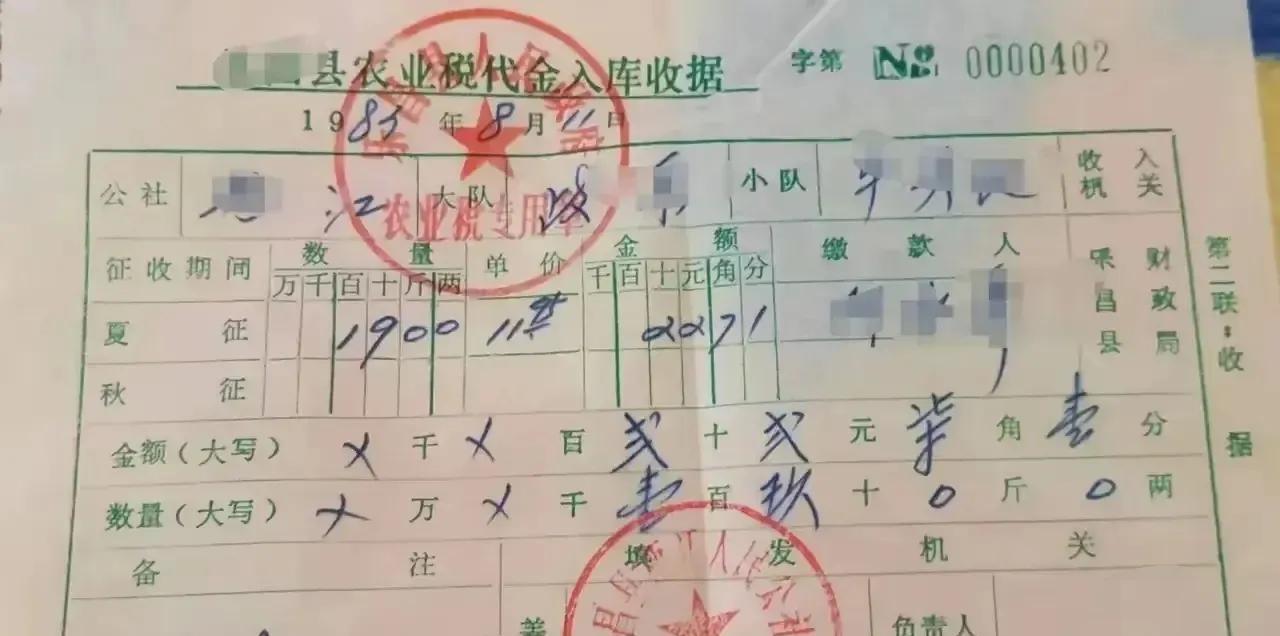 县农业税代金入库收据 字第 № 0000402
1983年8月11日
公社 江 大队 小队 收入机关
农业税专用章
征收期间 数量 单价 金额 缴款人 果昌县财政局
万千百十斤两 千百十元角分
夏征 1900 2271
秋征
金额(大写) ㄨ千ㄨ百贰十贰元柒角壹分
数量(大写) ㄨ万ㄨ千壹百玖十0斤0两
备注 填发机关
负责人
第二联:收据